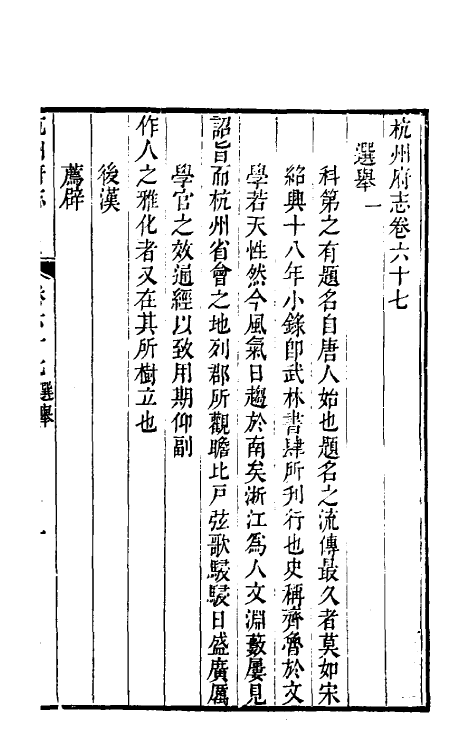 杭州府志卷六十七
選舉一
科第之有題名自唐人始也題名之流傳最久者莫如宋
紹興十八年小錄卽武林書肆所刊行也史稱齊魯於文
學若天性然今風氣日趨於南矣浙江爲人文淵藪屢見
詔旨而杭州省會之地列郡所觀瞻比戸弦歌駸駸日盛廣厲
學官之效通經以致用期仰副
作人之雅化者又在其所樹立也
後漢
薦辟
杭州府志 卷六十七 選舉 一